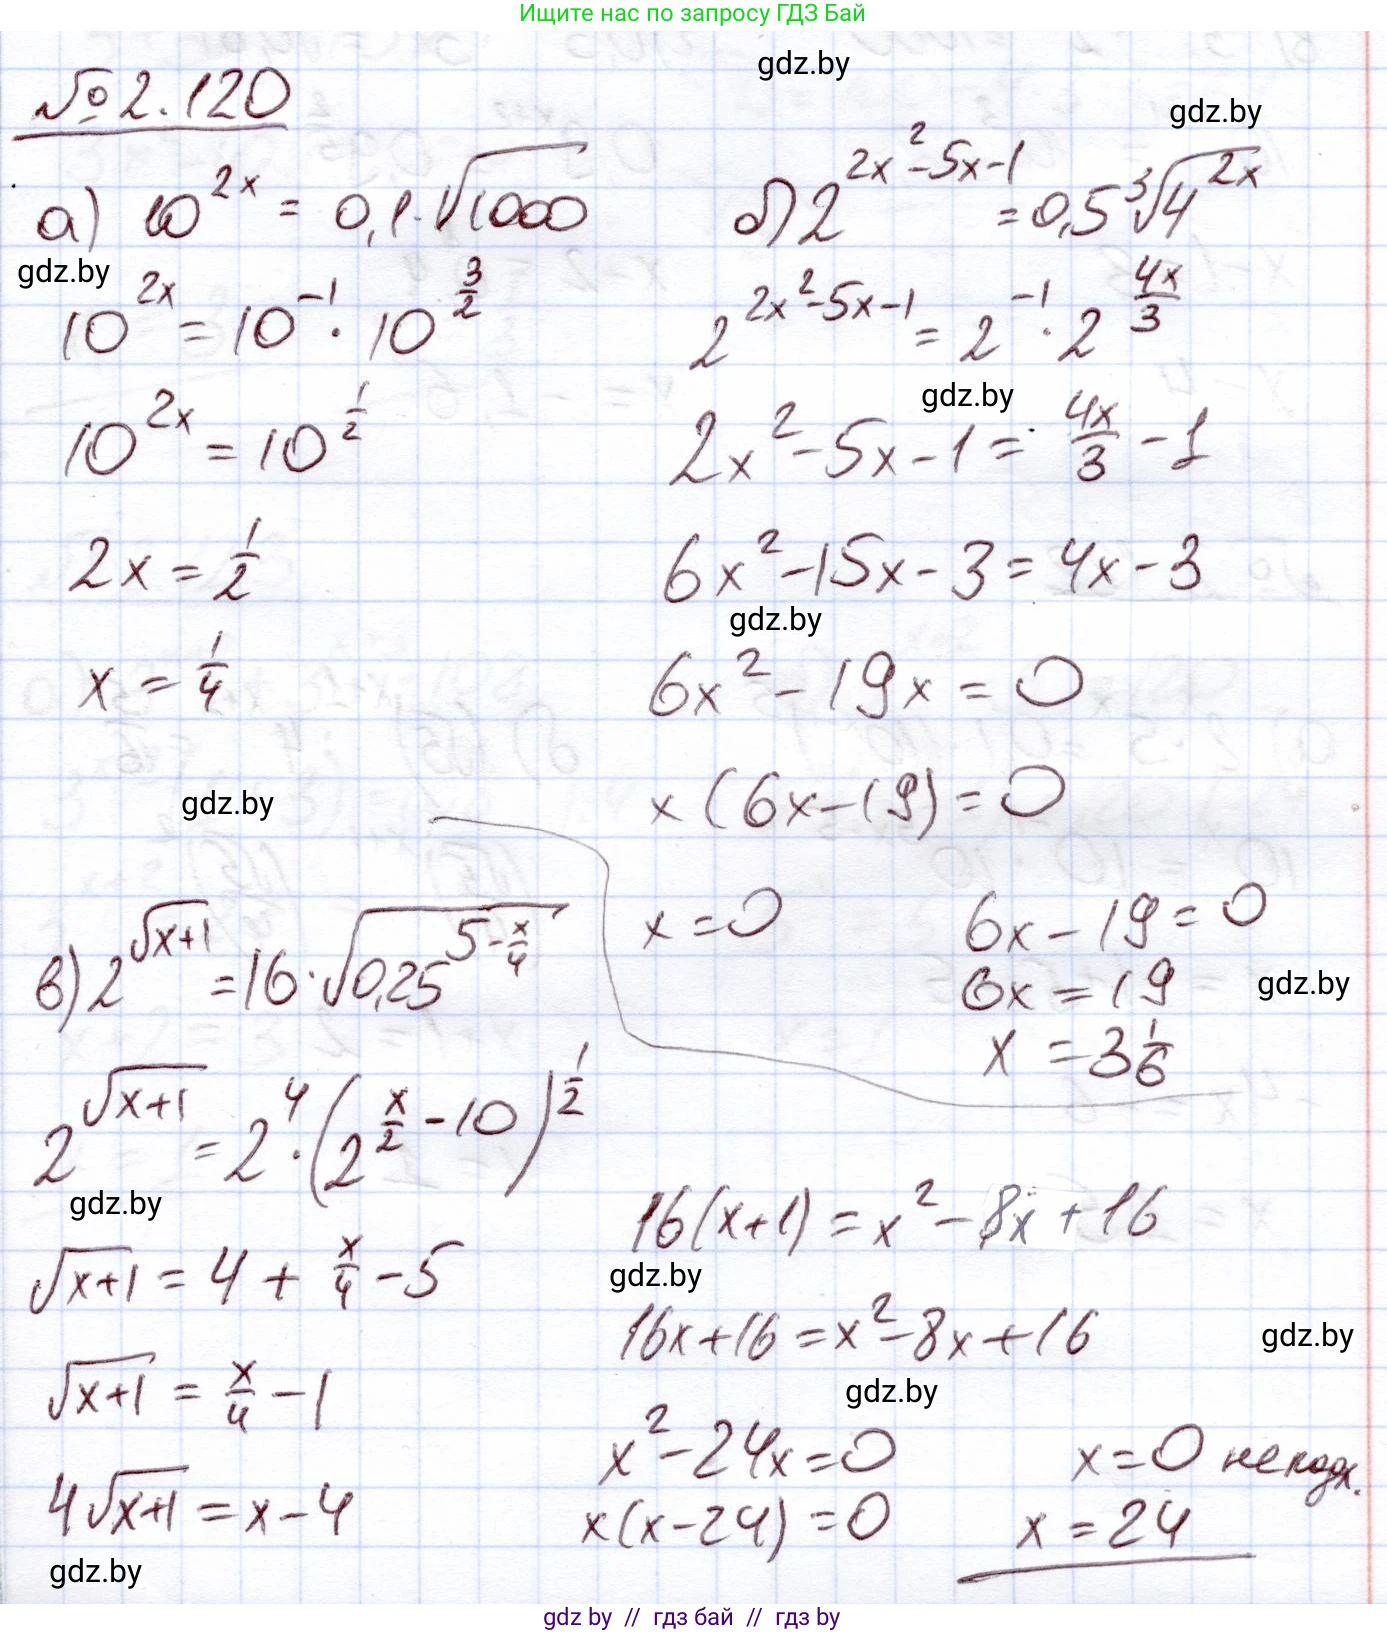 Ищите нас по запросу ГДЗ Бай
№ 2.120
gdz.by
gdz.by
а) 10^{2x} = 0,1·√1000
gdz.by
10^{2x} = 10^{-1} · 10^{3/2}
10^{2x} = 10^{1/2}
2x = 1/2
x = 1/4
gdz.by
б) 2^{2x²-5x-1} = 0,5 ∛4^{2x}
2^{2x²-5x-1} = 2^{-1} · 2^{4x/3}
gdz.by
2x²-5x-1 = 4x/3 - 1
6x²-15x-3 = 4x-3
gdz.by
6x²-19x = 0
x(6x-19) = 0
x = 0
6x-19 = 0
6x = 19
gdz.by
x = 3 1/6
в) 2^{√x+1} = 16·√0,25^{5-x/4}
2^{√x+1} = 2^4 · (2^{x/2 - 10})^{1/2}
gdz.by
√x+1 = 4 + x/4 - 5
√x+1 = x/4 - 1
4√x+1 = x-4
gdz.by
16(x+1) = x²-8x+16
gdz.by
16x+16 = x²-8x+16
gdz.by
gdz.by
x²-24x = 0
x(x-24) = 0
x = 0 не подх.
x = 24
gdz by // гдз бай // гдз by